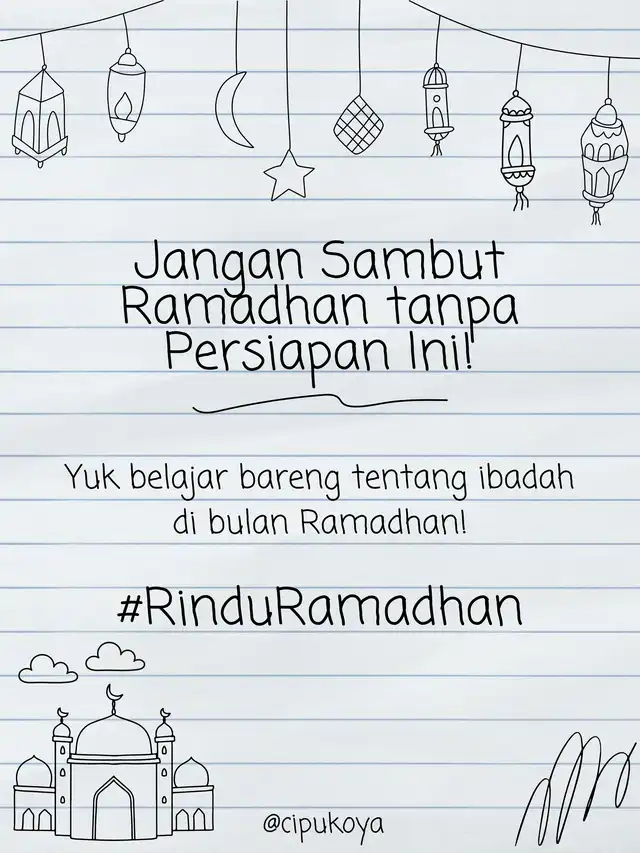 Jangan Sambut
Ramadhan tanpa
Persiapan Ini!
Yuk belajar bareng tentang ibadah
di bulan Ramadhan!
#RinduRamadhan
@cipukoya